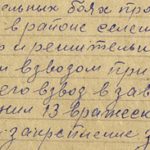 ельных боях пр
в районе селен
и решительн
и взводом при
его взвод в зав
нил 13 вражеск
закрепление з